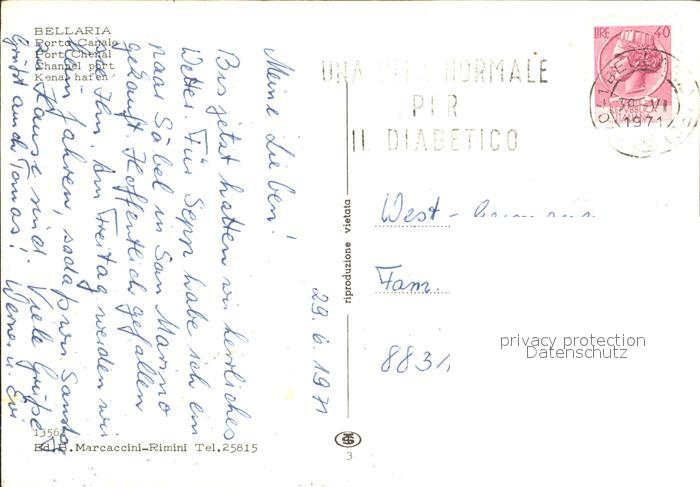 BELLARIA
Porto Canale
Port Chenal
Channel port
Kenal hafen
Meine Lieben!
Bis jetzt hatten wir herrliches
Wetter. Für Sepp habe ich ein
paar Säbel in San Marino
gekauft. Hoffentlich gefallen
sie Ihm. Am Freitag werden wir
Heim fahren, sodaß wir Samstag
zu Hause sind. Viele Grüße
Grüßt auch Tomas! Werner u. Evi
29.6.1971
13562
Ed. B. Marcaccini-Rimini Tel.25815
riproduzione vietata
3
UNA VITA NORMALE
PER
IL DIABETICO
LIRE 40
REPUBBLICA
ITALIANA
30 VI
1971
West-
Fam.
8831
privacy protection
Datenschutz